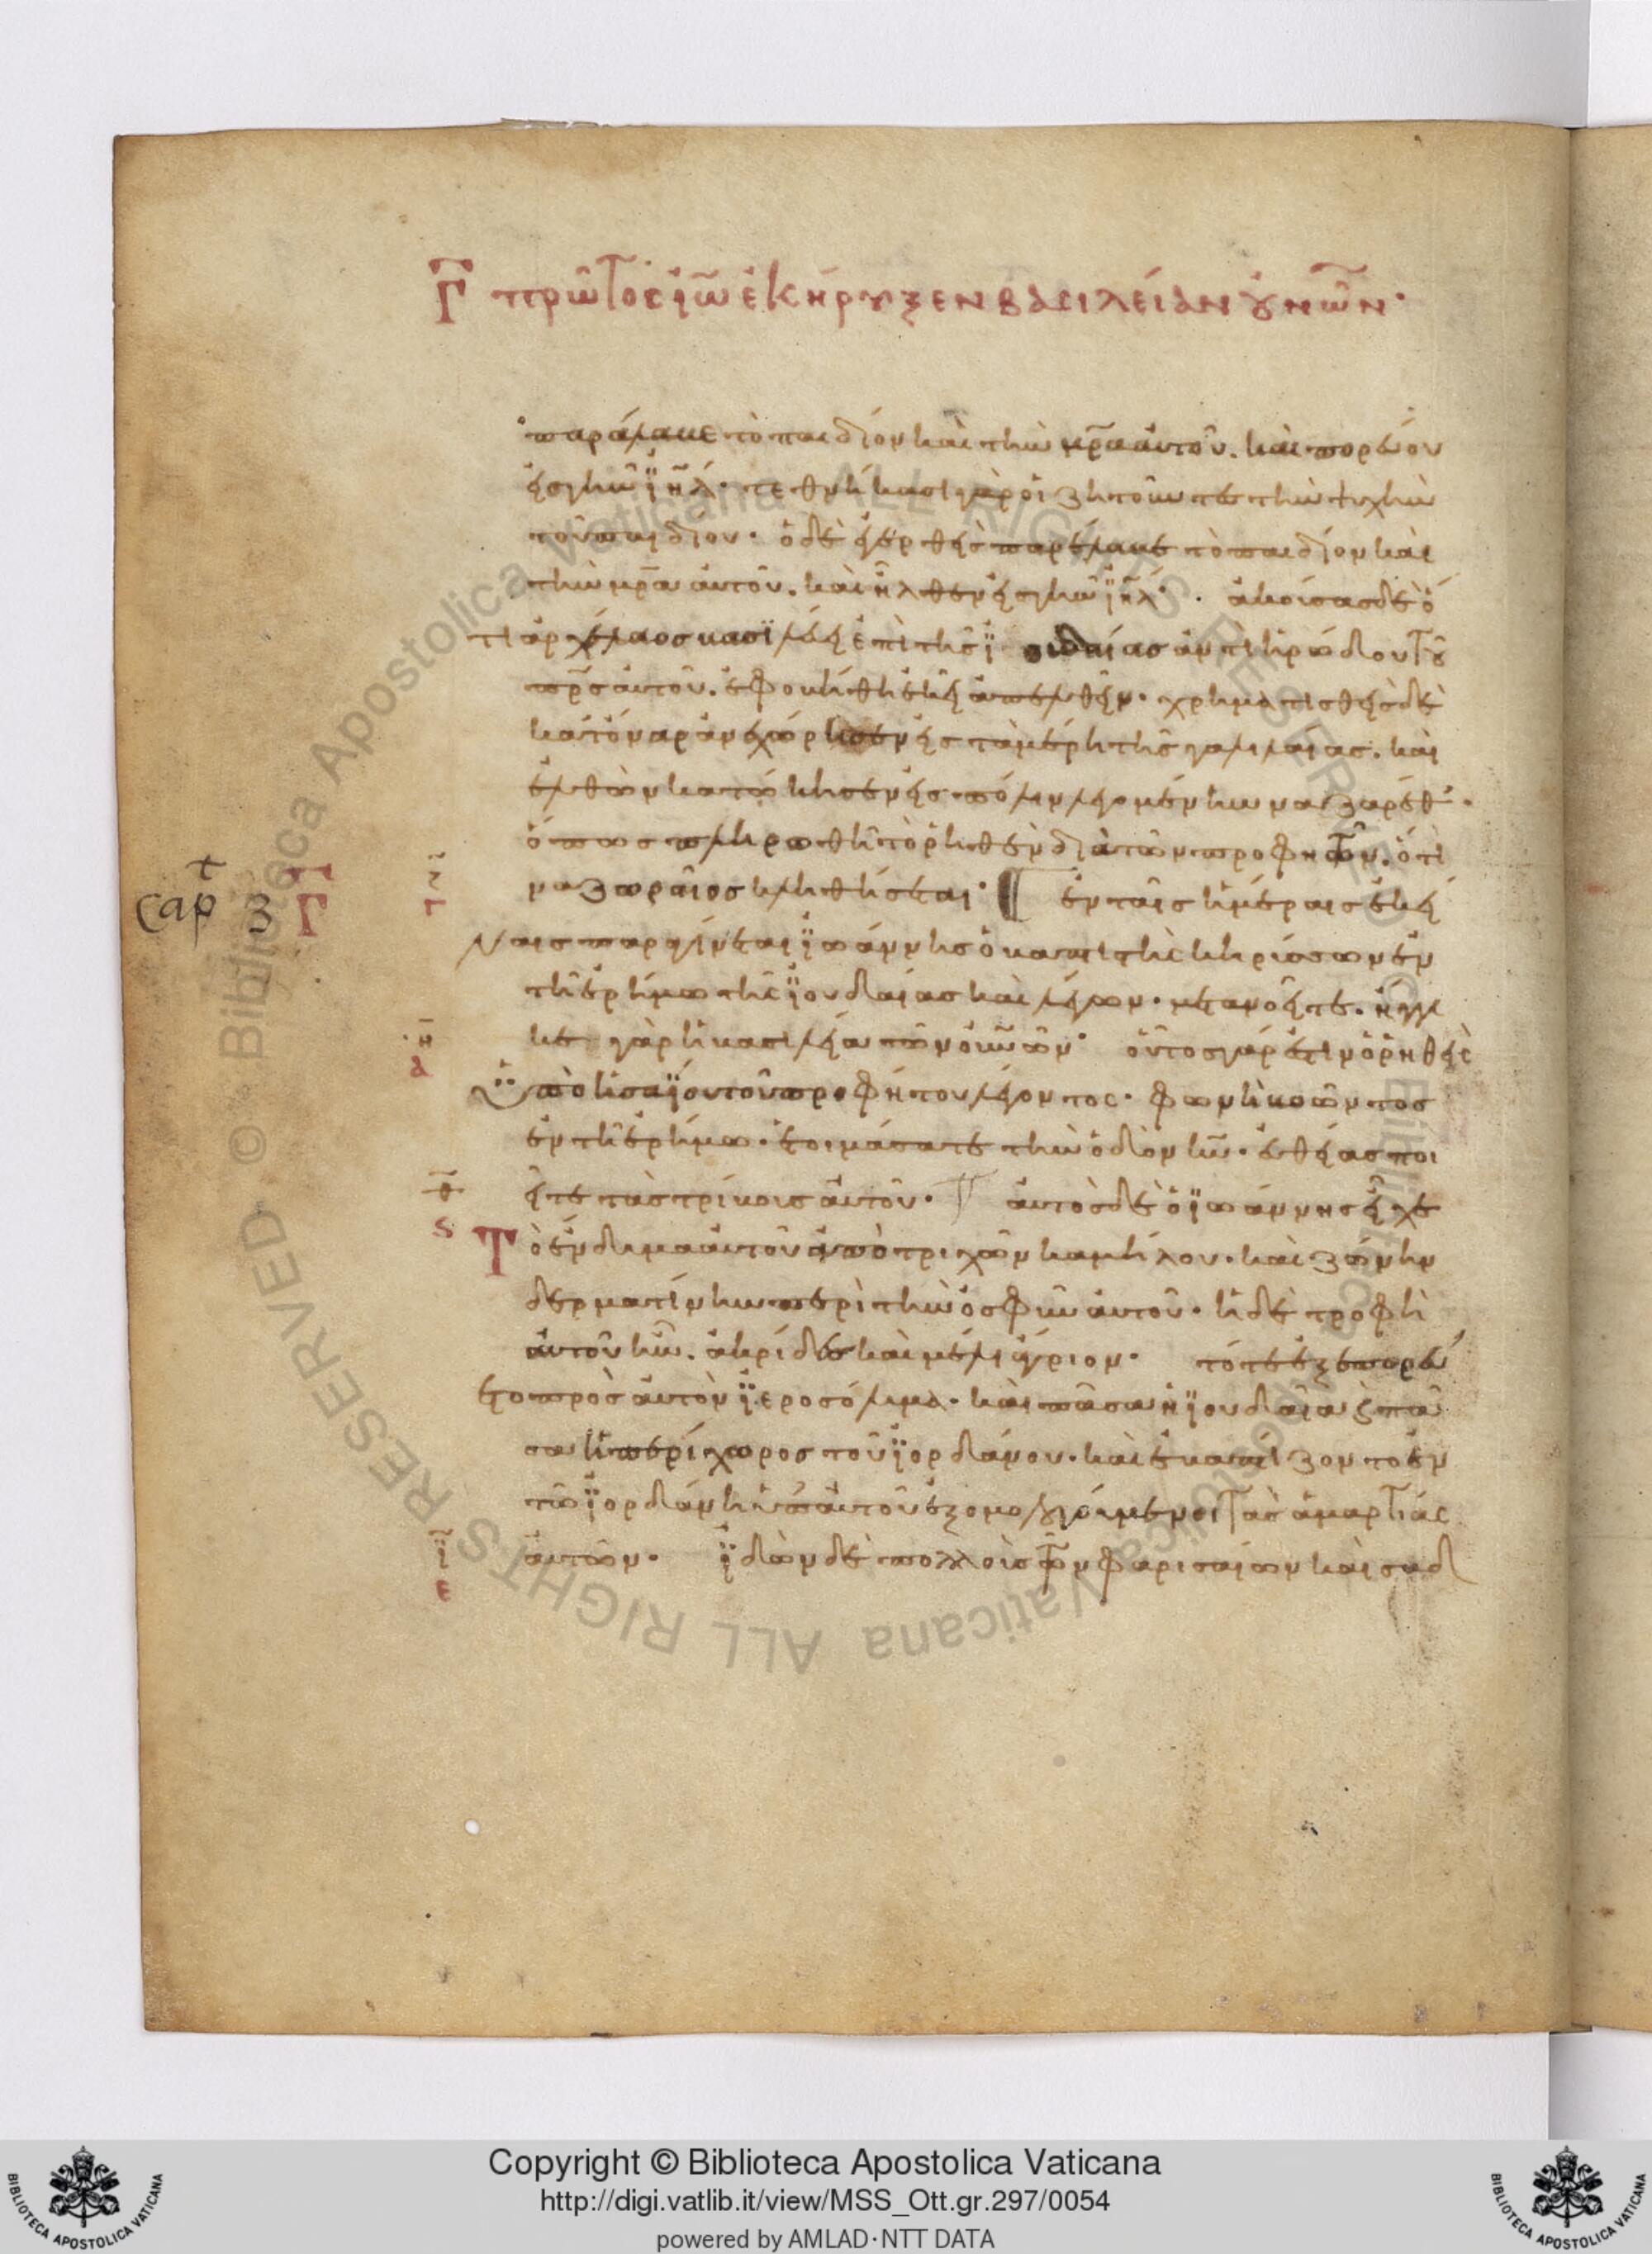 Γ πρῶτος ἰω̅ ἐκήρυξεν βασιλείαν οὐνῶν·
παράλαβε τὸ παιδίον καὶ τὴν μρ̅α αὐτοῦ. καὶ πορεύου
εἰς γῆν ἰη̅λ· τεθνήκασι γὰρ οἱ ζητοῦντες τὴν ψυχὴν
τοῦ παιδίου· ὁ δὲ ἐγερθεὶς παρέλαβε τὸ παιδίον καὶ
τὴν μρ̅α αὐτοῦ. καὶ ἦλθεν εἰς γῆν ἰη̅λ· ἀκούσας δὲ ὅ
τι ἀρχέλαος βασιλεύει ἐπὶ τῆς ἰουδαίας ἀντὶ ἡρώδου τοῦ
πρ̅ς αὐτοῦ. ἐφοβήθη ἐκεῖ ἀπελθεῖν· χρηματισθεὶς δὲ
κατόναρ ἀνεχώρησεν εἰς τὰ μέρη τῆς γαλιλαίας. καὶ
ἐλθὼν κατώκησεν εἰς πόλιν λεγομένην ναζαρέθ·
ὅπως πληρωθῆ τὸ ῥηθὲν διὰ τῶν προφητῶν. ὅτι
ναζωραῖος κληθήσεται· ἐν ταῖς ἡμέραις ἐκεί
cap 3 Γ
ναις παραγίνεται ἰωάννης ὁ βαπτιστὴς κηρύσσων ἐν
τῆ ἐρήμω τῆς ἰουδαίας καὶ λέγων· μετανοεῖτε. ἤγγι
κε γὰρ ἡ βασιλεία τῶν οὐνῶν· οὗτος γάρ ἐστιν ὁ ῥηθεὶς
ὑπὸ ἡσαΐου τοῦ προφήτου λέγοντος· φωνὴ βοῶντος
ἐν τῆ ἐρήμω· ἑτοιμάσατε τὴν ὁδὸν κυ̅· εὐθείας ποι
εῖτε τὰς τρίβους αὐτοῦ· αὐτὸς δὲ ὁ ἰωάννης εἶχε
Τὸ ἔνδυμα αὐτοῦ ἀπὸ τριχῶν καμήλου· καὶ ζώνην
δερματίνην περὶ τὴν ὀσφῦν αὐτοῦ· ἡ δὲ τροφὴ
αὐτοῦ ἦν. ἀκρίδες καὶ μέλι ἄγριον· τότε ἐξεπορεύ
ετο πρὸς αὐτὸν ἱεροσόλυμα· καὶ πᾶσα ἡ ἰουδαία καὶ πᾶ
σα ἡ περίχωρος τοῦ ἰορδάνου· καὶ ἐβαπτίζοντο ἐν
τῶ ἰορδάνη ὑπ' αὐτοῦ ἐξομολογούμενοι τὰς ἁμαρτίας
αὐτῶν· ἰδὼν δὲ πολλοὺς τῶν φαρισαίων καὶ σαδ
Copyright © Biblioteca Apostolica Vaticana
http://digi.vatlib.it/view/MSS_Ott.gr.297/0054
powered by AMLAD·NTT DATA